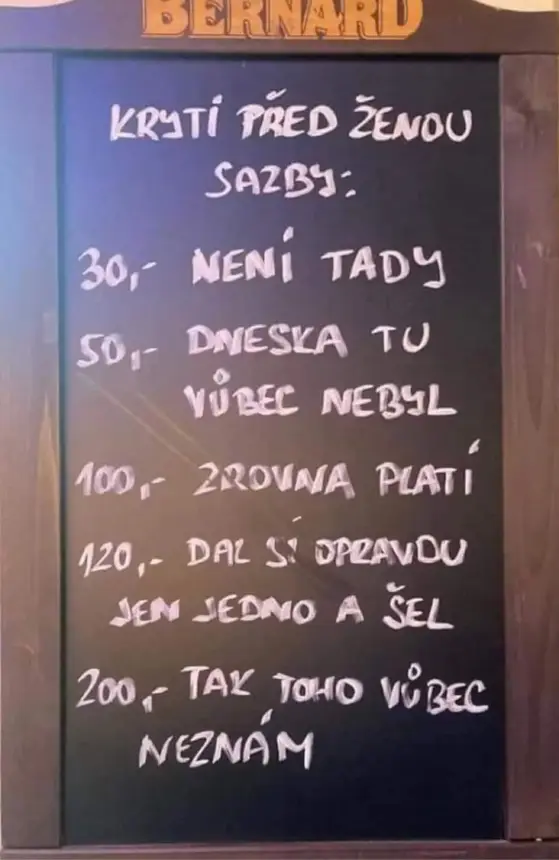 BERNARD
KRYTÍ PŘED ŽENOU
SAZBY:
30,- NENÍ TADY
50,- DNESKA TU
VŮBEC NEBYL
100,- ZROVNA PLATÍ
120,- DAL SI OPRAVDU
JEN JEDNO A ŠEL
200,- TAK TOHO VŮBEC
NEZNÁM